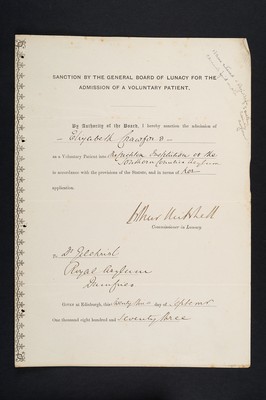 SANCTION BY THE GENERAL BOARD OF LUNACY FOR THE
ADMISSION OF A VOLUNTARY PATIENT.
By Authority of the Board, I hereby sanction the admission of
Elizabeth Crawford
as a Voluntary Patient into Crichton Institution or the
Southern Counties Asylum
in accordance with the provisions of the Statute, and in terms of her
application.
Arthur Mitchell
Commissioner in Lunacy
To Dr Gilchrist
Royal Asylum
Dumfries
Given at Edinburgh, this day of September
One thousand eight hundred and Seventy three